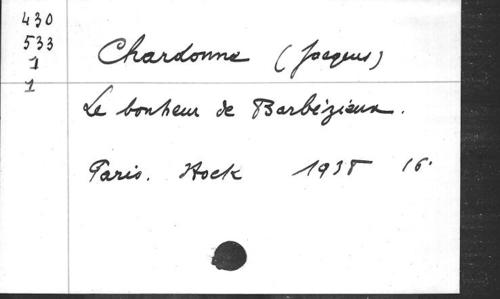 430
533
1
1
Chardonne (Jacques)
Le bonheur de Barbézieux.
Paris. Stock 1938 16°